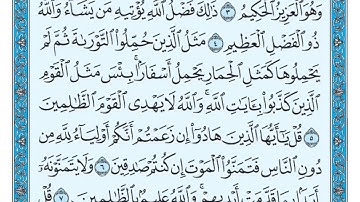 وَهُوَ ٱلْعَزِيزُ ٱلْحَكِيمُ ٣ ذَٰلِكَ فَضْلُ ٱللَّهِ يُؤْتِيهِ مَن يَشَآءُ وَٱللَّهُ
ذُو ٱلْفَضْلِ ٱلْعَظِيمِ ٤ مَثَلُ ٱلَّذِينَ حُمِّلُوا۟ ٱلتَّوْرَىٰةَ ثُمَّ لَمْ
يَحْمِلُوهَا كَمَثَلِ ٱلْحِمَارِ يَحْمِلُ أَسْفَارًۢا ۚ بِئْسَ مَثَلُ ٱلْقَوْمِ
ٱلَّذِينَ كَذَّبُوا۟ بِـَٔايَٰتِ ٱللَّهِ ۚ وَٱللَّهُ لَا يَهْدِى ٱلْقَوْمَ ٱلظَّٰلِمِينَ
٥ قُلْ يَٰٓأَيُّهَا ٱلَّذِينَ هَادُوٓا۟ إِن زَعَمْتُمْ أَنَّكُمْ أَوْلِيَآءُ لِلَّهِ مِن
دُونِ ٱلنَّاسِ فَتَمَنَّوُا۟ ٱلْمَوْتَ إِن كُنتُمْ صَٰدِقِينَ ٦ وَلَا يَتَمَنَّوْنَهُۥٓ
أَبَدًۢا بِمَا قَدَّمَتْ أَيْدِيهِمْ ۚ وَٱللَّهُ عَلِيمٌۢ بِٱلظَّٰلِمِينَ ٧ قُلْ